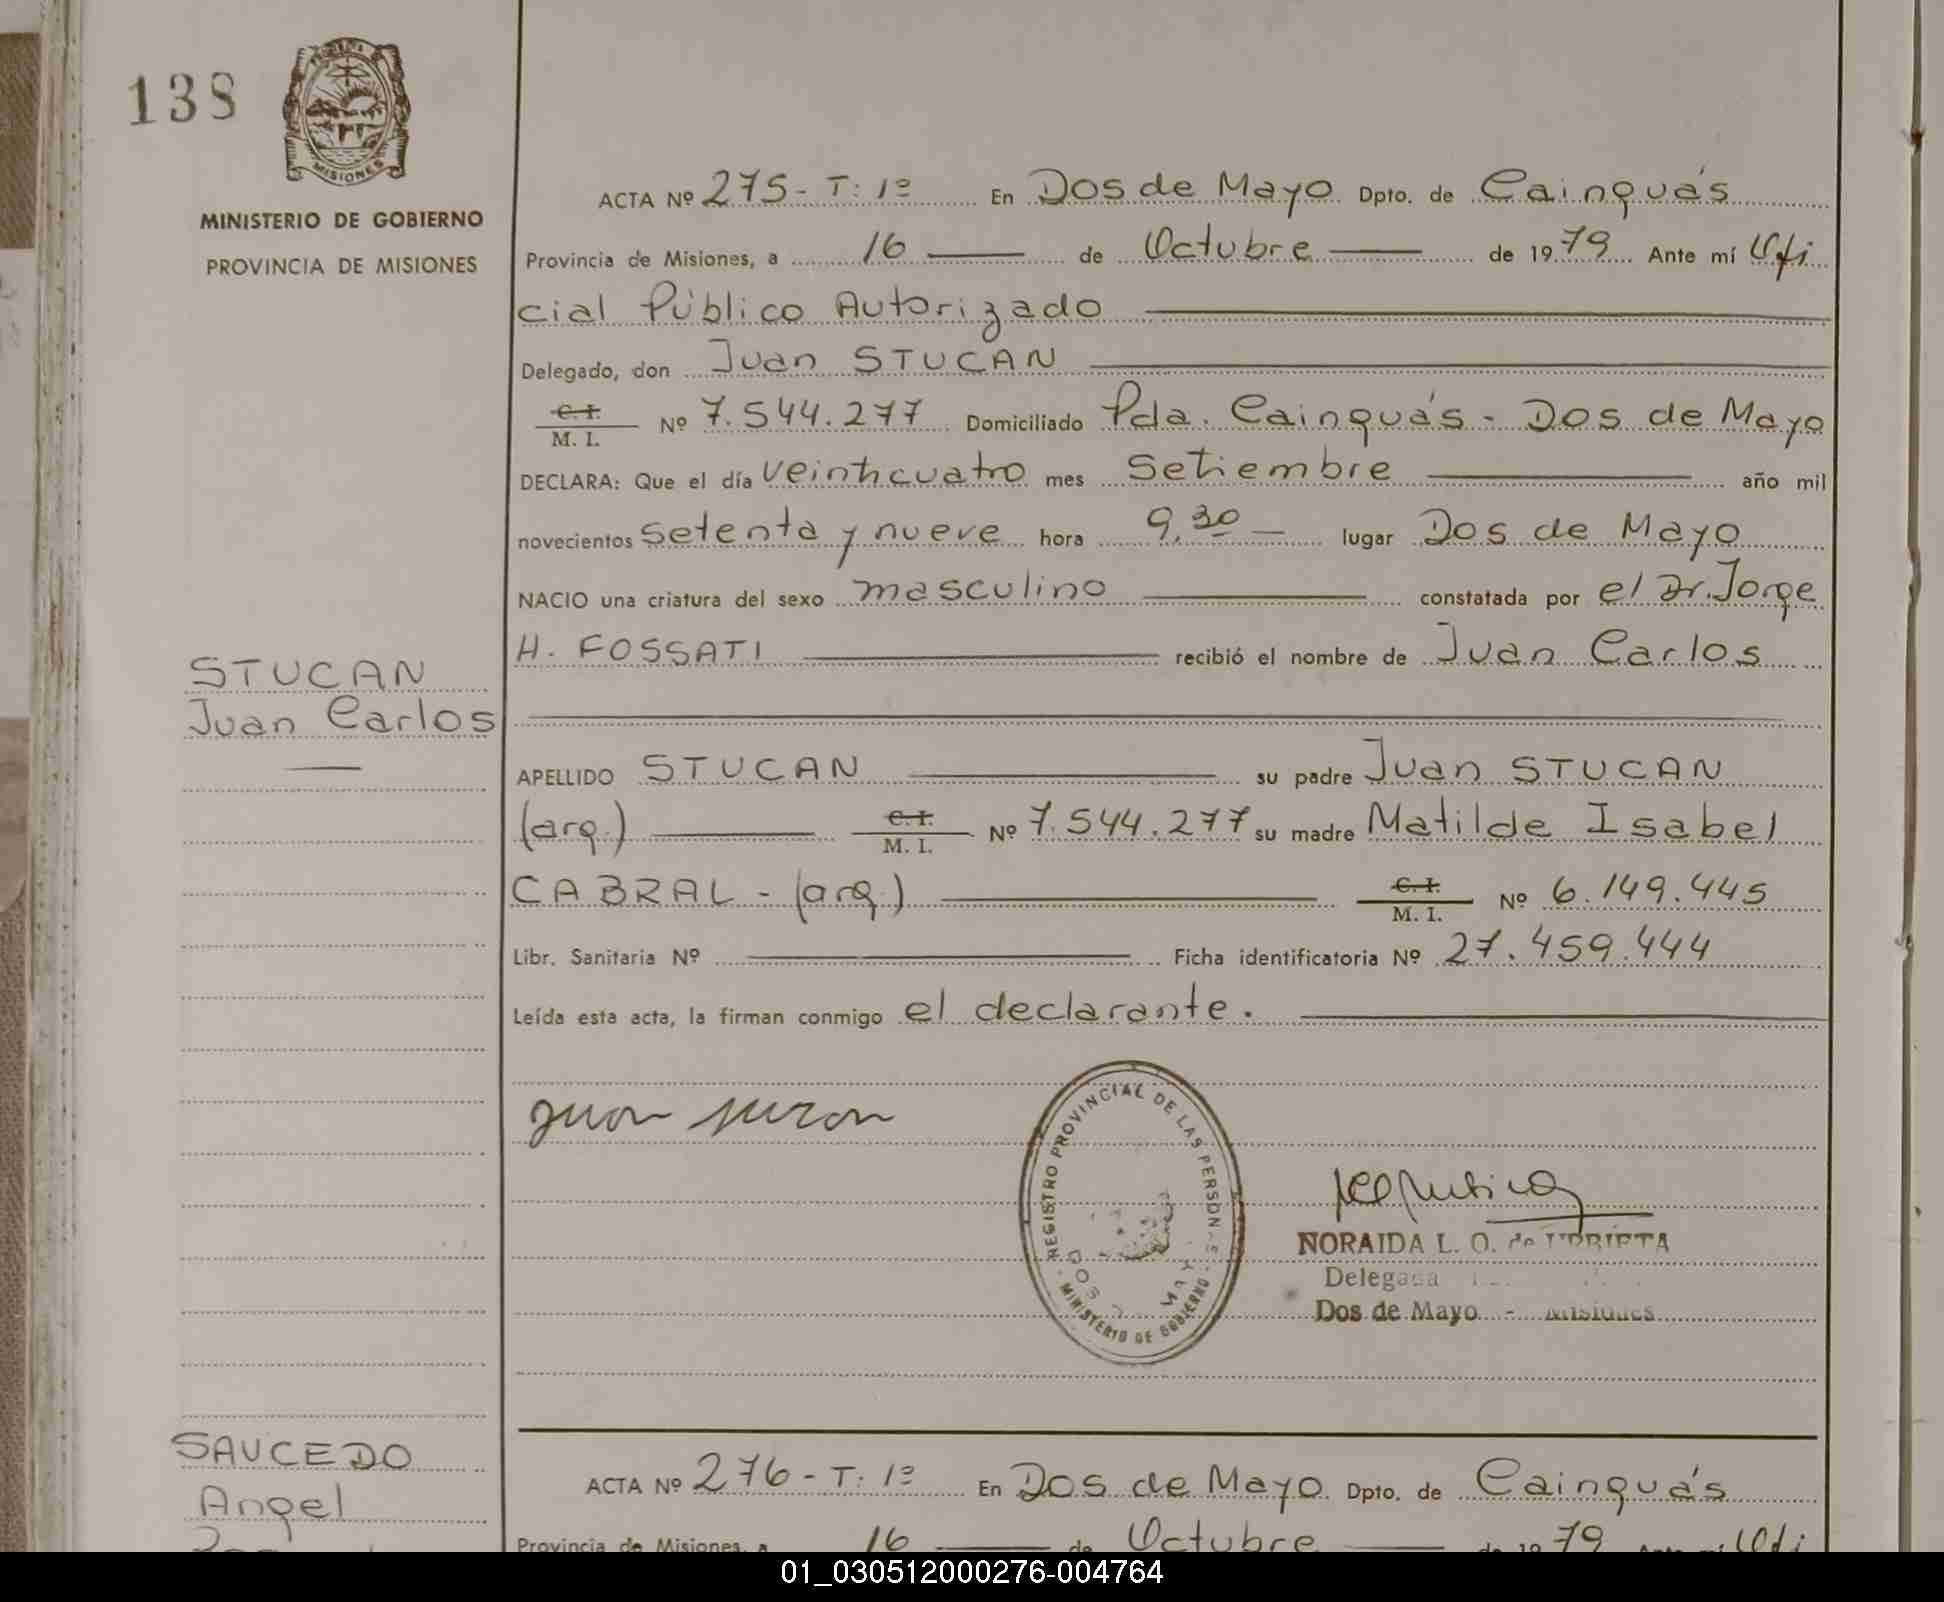 138
MISIONES
MINISTERIO DE GOBIERNO
PROVINCIA DE MISIONES
ACTA Nº 275 - T: 1º En Dos de Mayo Dpto. de Cainguás
Provincia de Misiones, a 16 de Octubre de 1979 Ante mí Ofi
cial Público Autorizado
Delegado, don Juan STUCAN
C.I.
M. I. Nº 7.544.277 Domiciliado Pda. Cainguás - Dos de Mayo
DECLARA: Que el día veinticuatro mes Setiembre año mil
novecientos setenta y nueve hora 9,30 lugar Dos de Mayo
NACIO una criatura del sexo masculino constatada por el Dr. Jorge
H. FOSSATI recibió el nombre de Juan Carlos
STUCAN
Juan Carlos
APELLIDO STUCAN su padre Juan STUCAN
(arg.) C.I. M. I. Nº 7.544.277 su madre Matilde Isabel
CABRAL - (arg.) C.I. M. I. Nº 6.149.445
Libr. Sanitaria Nº Ficha identificatoria Nº 27.459.444
Leída esta acta, la firman conmigo el declarante.
REGISTRO PROVINCIAL DE LAS PERSONAS
MINISTERIO DE GOBIERNO
DOS
NORAIDA L. O. de URRIETA
Delegada
Dos de Mayo - Misiones
SAUCEDO
Angel
ACTA Nº 276 - T: 1º En Dos de Mayo Dpto. de Cainguás
Provincia de Misiones, a 16 de Octubre de 1979 Ante mí Ofi
01_030512000276-004764